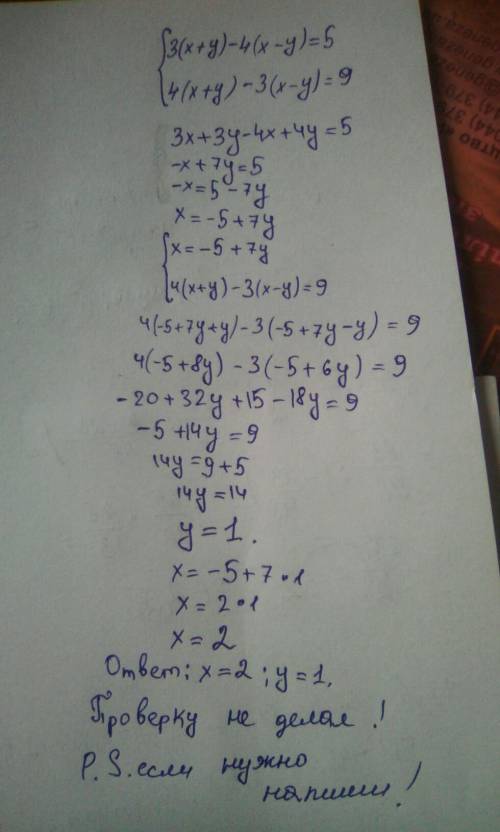 3(x+y)-4(x-y)=5
4(x+y)-3(x-y)=9
3x+3y-4x+4y=5
-x+7y=5
-x=5-7y
x=-5+7y
x=-5+7y
4(x+y)-3(x-y)=9
4(-5+7y+y)-3(-5+7y-y)=9
4(-5+8y)-3(-5+6y)=9
-20+32y+15-18y=9
-5+14y=9
14y=9+5
14y=14
y=1.
x=-5+7•1
x=2•1
x=2
Ответ: x=2; y=1.
Проверку не делал!
P.S. если нужно
напиши!